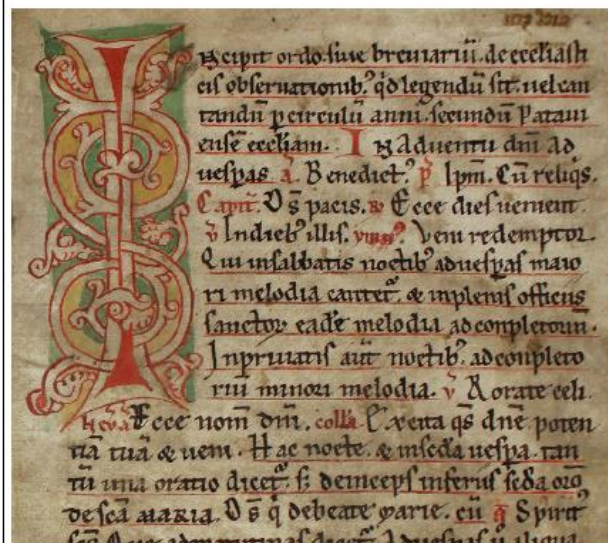 Incipit ordo siue breviariū. de eccliasti
cis obseruationib; qd legendū sit. uel can
tandū p circulū anni. secundū Pataui
ensē eccliam. In aduentu dni ad
uespas. a. Benedict;. p Ipm. Cū reliqs.
Capit. Ds pacis. R Ecce dies ueniunt.
v Indieb; illis. ymn;. Veni redemptor.
Qui in sabbatis noctib; ad uespas maio
ri melodia cantet. & in plenis officiis
sanctor eadē melodia ad conpletoriū.
In priuatis aut noctib;. ad conpleto
riū minori melodia. v Rorate celi.
In eva a Ecce nom dni. collā Excita qs dne poten
tiā tuā & ueni. Hac nocte. & in scda uespa. tan
tū una oratio dicet. s; deinceps inferius scda orō
de scā MARIA. Ds q de beate marie. cū q Spirit